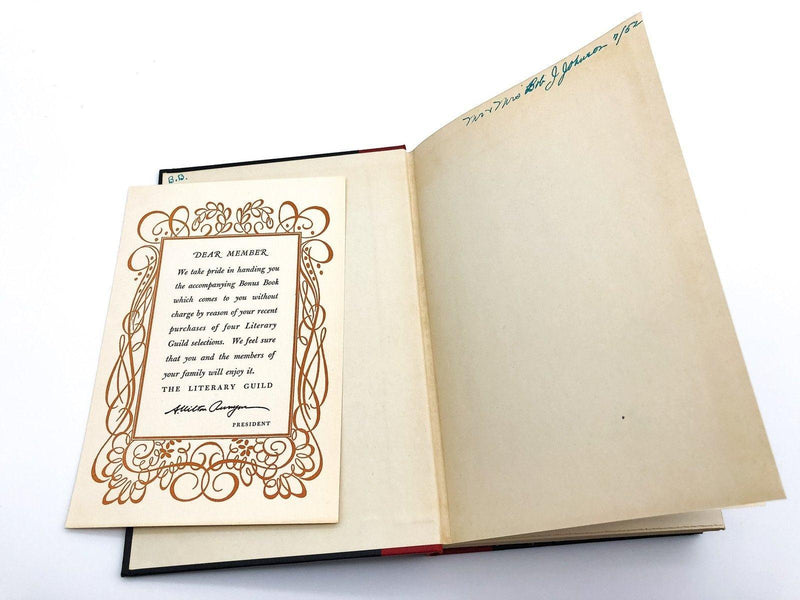 B.D.
DEAR MEMBER
We take pride in handing you
the accompanying Bonus Book
which comes to you without
charge by reason of your recent
purchases of four Literary
Guild selections. We feel sure
that you and the members of
your family will enjoy it.
THE LITERARY GUILD
S. Milton Runyon
PRESIDENT
Mr & Mrs Bob J Johnson 9/52